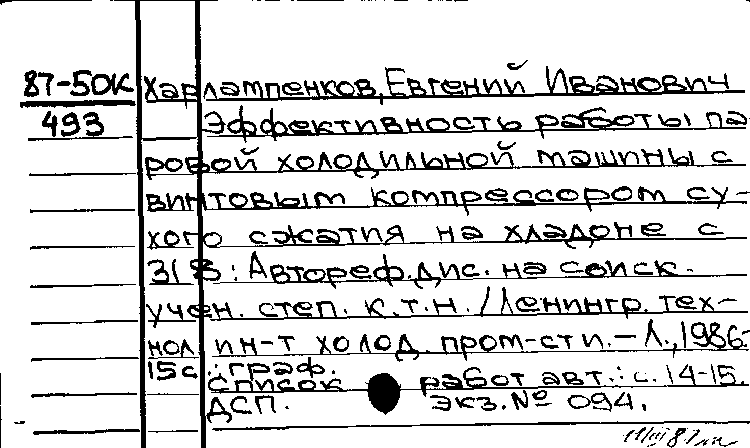 87-50К Харлампенков, Евгений Иванович
493 Эффективность работы па
ровой холодильной машины с
винтовым компрессором су-
хого сжатия на хладоне с
318: Автореф. дис. на соиск.
учен. степ. к.т.н. / Ленингр. тех-
нол ин-т холод. пром-сти. – Л., 1986-
15с.: граф.
Список работ авт.: с. 14-15.
ДСП. экз. № 094.